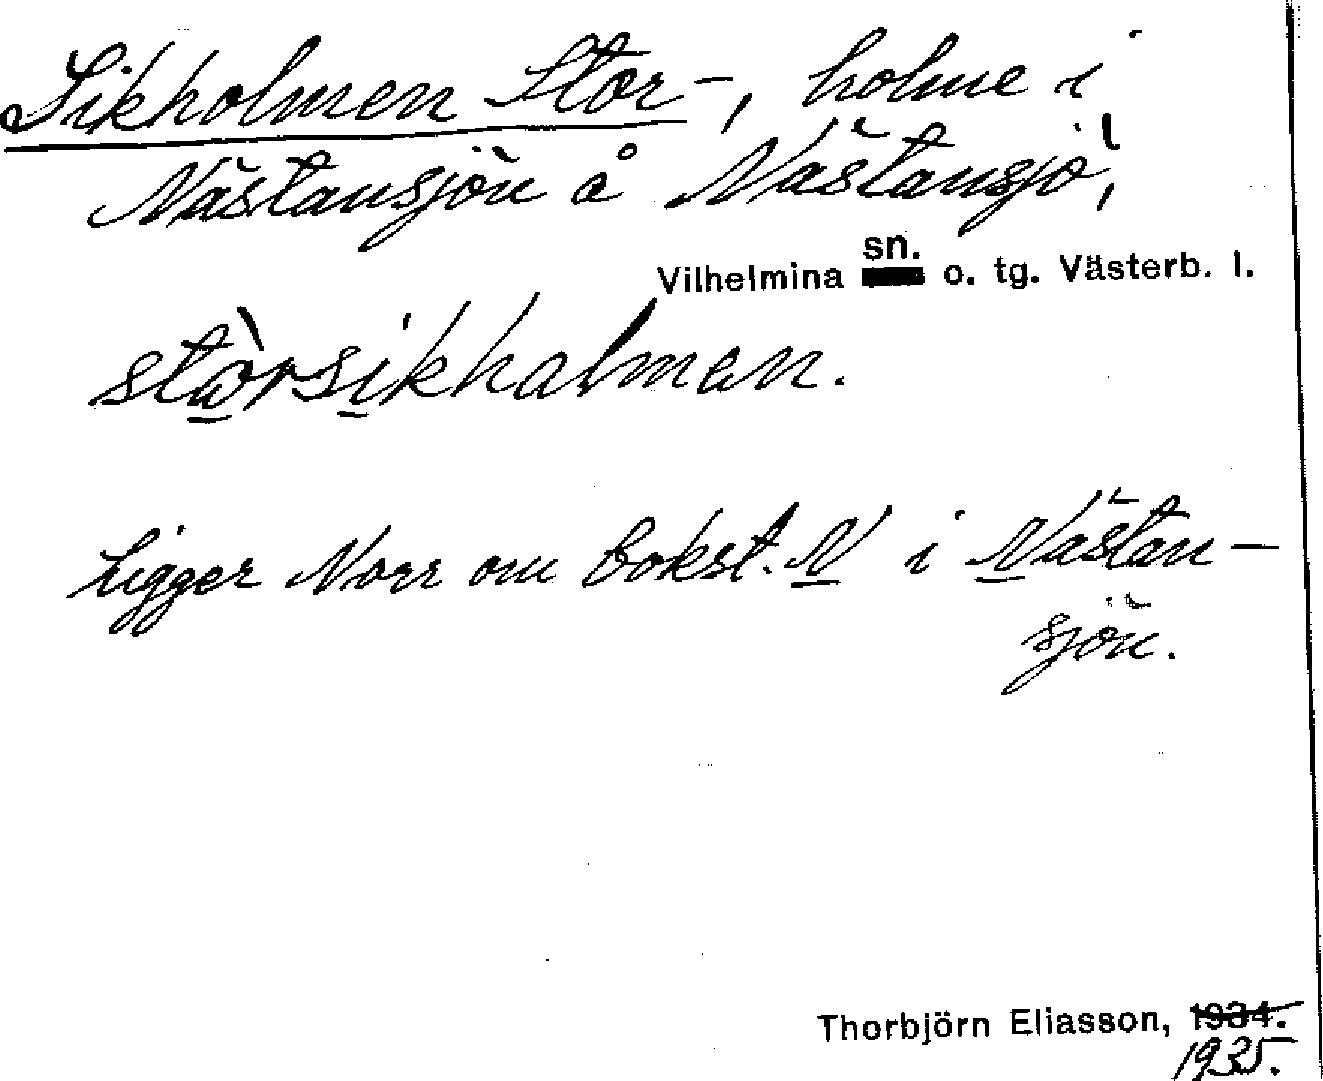 Sikholmen Stor-, holme i
Nästansjön å Nästansjö,
sn.
Vilhelmina o. tg. Västerb. l.
stòrsikhalmen.
Ligger Norr om bokst. N i Nästan-
sjön.
Thorbjörn Eliasson, 1934.
1935.